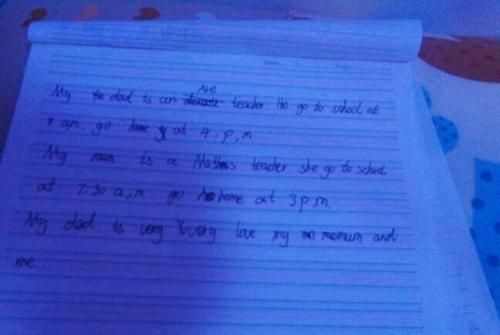 Are
My dad is an teacher He go to school at
8 a.m. go home at 4. p, m
My mum is a Maths teacher she go to school
at 7:30 a, m go home at 3 p m
My dad is very very love my momum and
me